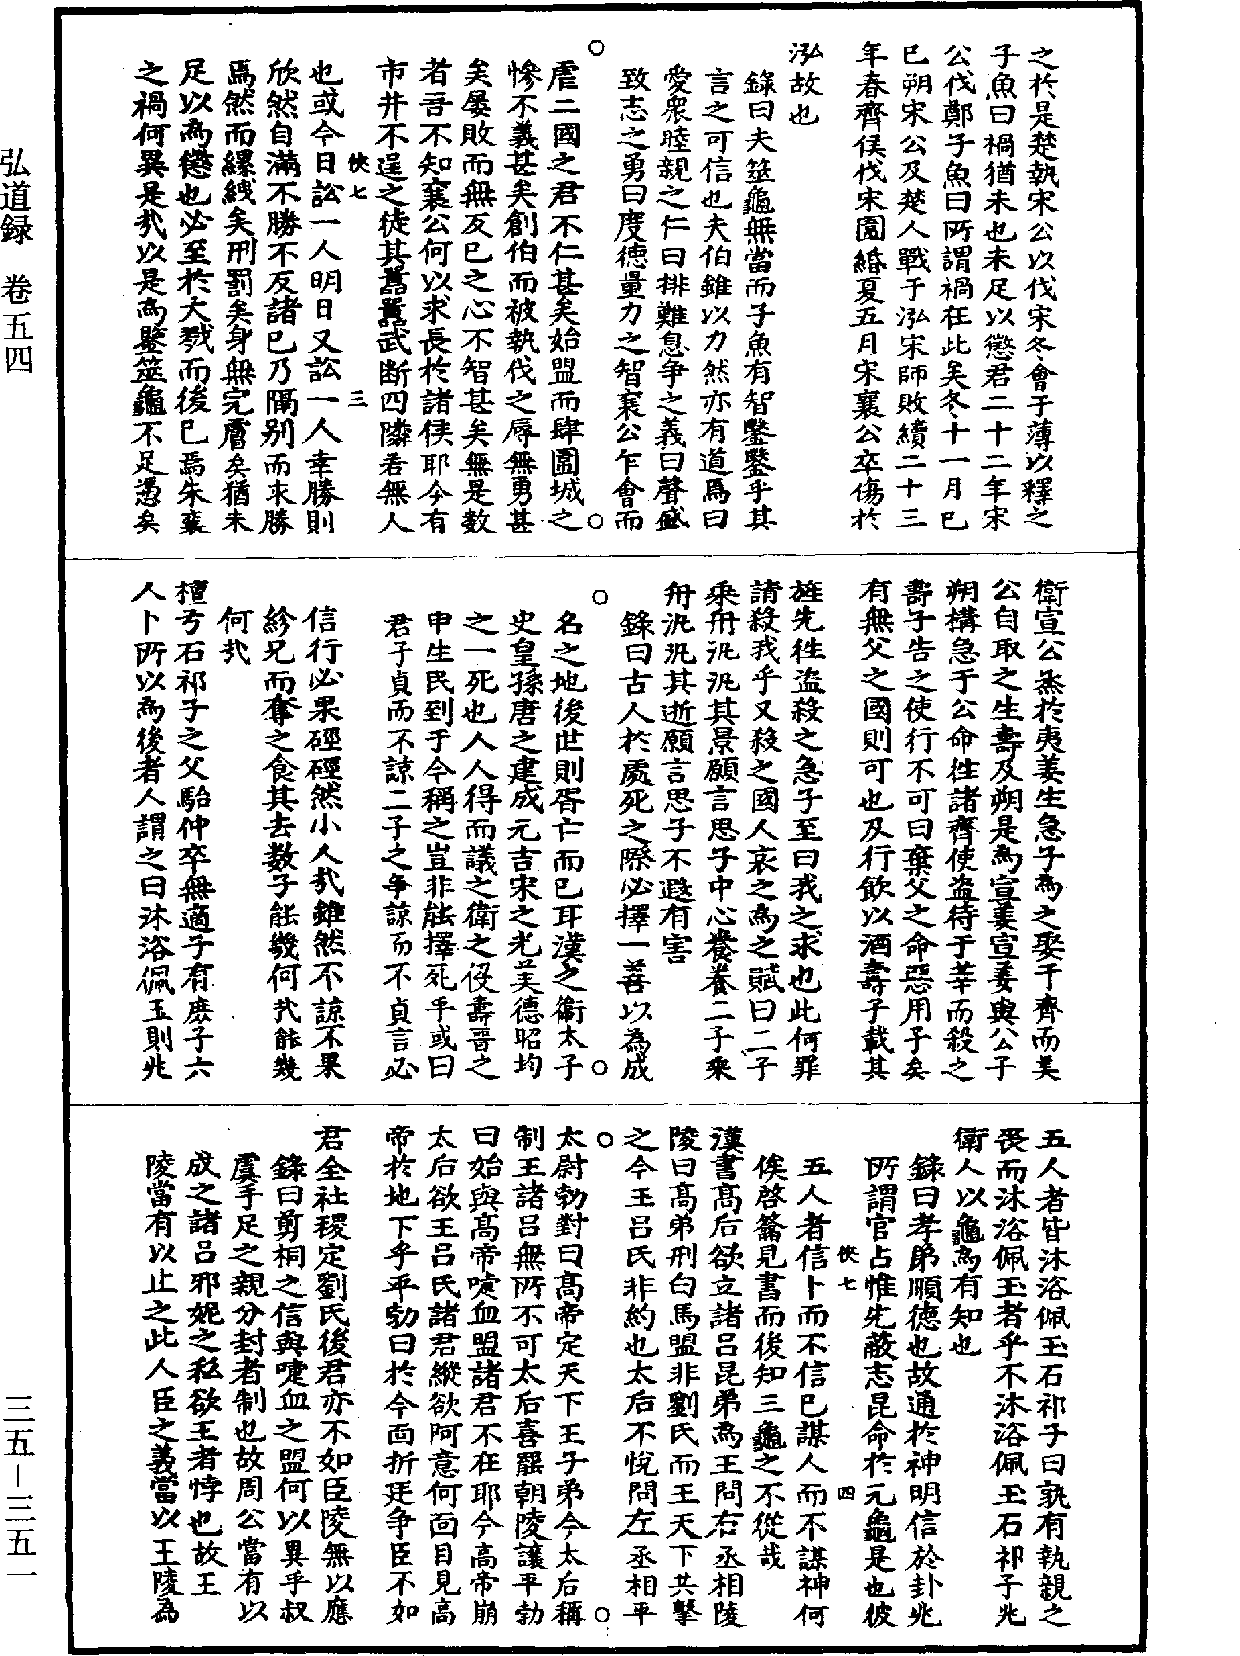 之於是楚執宋公以伐宋冬會于薄以釋之
子魚曰禍猶未也未足以懲君二十二年宋
公伐鄭子魚曰所謂禍在此矣冬十一月己
巳朔宋公及楚人戰于泓宋師敗績二十三
年春齊侯伐宋圍緡夏五月宋襄公卒傷於
泓故也
錄曰夫筮龜無當而子魚有智鑿鑿乎其
言之可信也夫伯雖以力然亦有道焉曰
愛眾睦親之仁曰排難息爭之義曰聲弑
致志之勇曰度德量力之智襄公乍會而
虐二國之君不仁甚矣始盟而肆圍城之
慘不義甚矣創伯而被執伐之辱無勇甚
矣屢敗而無反己之心不智甚矣無是數
者吾不知襄公何以求長於諸侯耶今有
市井不逞之徒其囂囂武断四隣若無人
俠七
三
也或今日訟一人明日又訟一人幸勝則
欣然自滿不勝不反諸己乃隔别而求勝
焉然而縲絏矣刑罰矣身無完膚矣猶未
足以為懲也必至於大戮而後已焉宋襄
之禍何異是哉以是為鑒筮龜不足憑矣
衛宣公烝於夷姜生急子為之娶于齊而美
公自取之生壽及朔是為宣姜宣姜與公子
朔構急于公命往諸齊使盗待于莘而殺之
壽子告之使行不可曰棄父之命惡用子矣
有無父之國則可也及行飲以酒壽子載其
旌先往盗殺之急子至曰我之求也此何罪
請殺我乎又殺之國人哀之為之賦曰二子
乘舟汎汎其景願言思子中心養養二子乘
舟汎汎其逝願言思子不遐有害
錄曰古人於處死之際必擇一善以為成
名之地後世則胥亡而已耳漢之衛太子
史皇孫唐之建成元吉宋之光美德昭均
之一死也人人得而議之衛之伋壽晋之
申生民到于今稱之豈非能擇死乎或曰
君子貞而不諒二子之爭諒而不貞言必
信行必果硜硜然小人哉雖然不諒不果
紾兄而奪之食其去數子能幾何哉能幾
何哉
檀弓石祁子之父駘仲卒無適子有庶子六
人卜所以為後者人謂之曰沐浴佩玉則兆
五人者皆沐浴佩玉石祁子曰孰有執親之
喪而沐浴佩玉者乎不沐浴佩玉石祁子兆
衛人以龜為有知也
錄曰孝弟順德也故通於神明信於卦兆
所謂官占惟先蔽志昆命於元龜是也彼
俠七
四
五人者信卜而不信己謀人而不謀神何
俟啓籥見書而後知三龜之不從哉
漢書高后欲立諸呂昆弟為王問右丞相陵
陵曰高弟刑白馬盟非劉氏而王天下共擊
之今王呂氏非約也太后不悅問左丞相平
太尉勃對曰高帝定天下王子弟今太后稱
制王諸呂無所不可太后喜罷朝陵讓平勃
曰始與高帝啑血盟諸君不在耶今高帝崩
太后欲王呂氏諸君縱欲阿意何面目見高
帝於地下乎平勃曰於今面折廷争臣不如
君全社稷定劉氏後君亦不如臣陵無以應
錄曰剪桐之信與啑血之盟何以異乎叔
虞手足之親分封者制也故周公當有以
成之諸呂邪妮之私欲王者悖也故王
陵當有以止之此人臣之義當以王陵為
弘道録 卷五四
三五－三五一